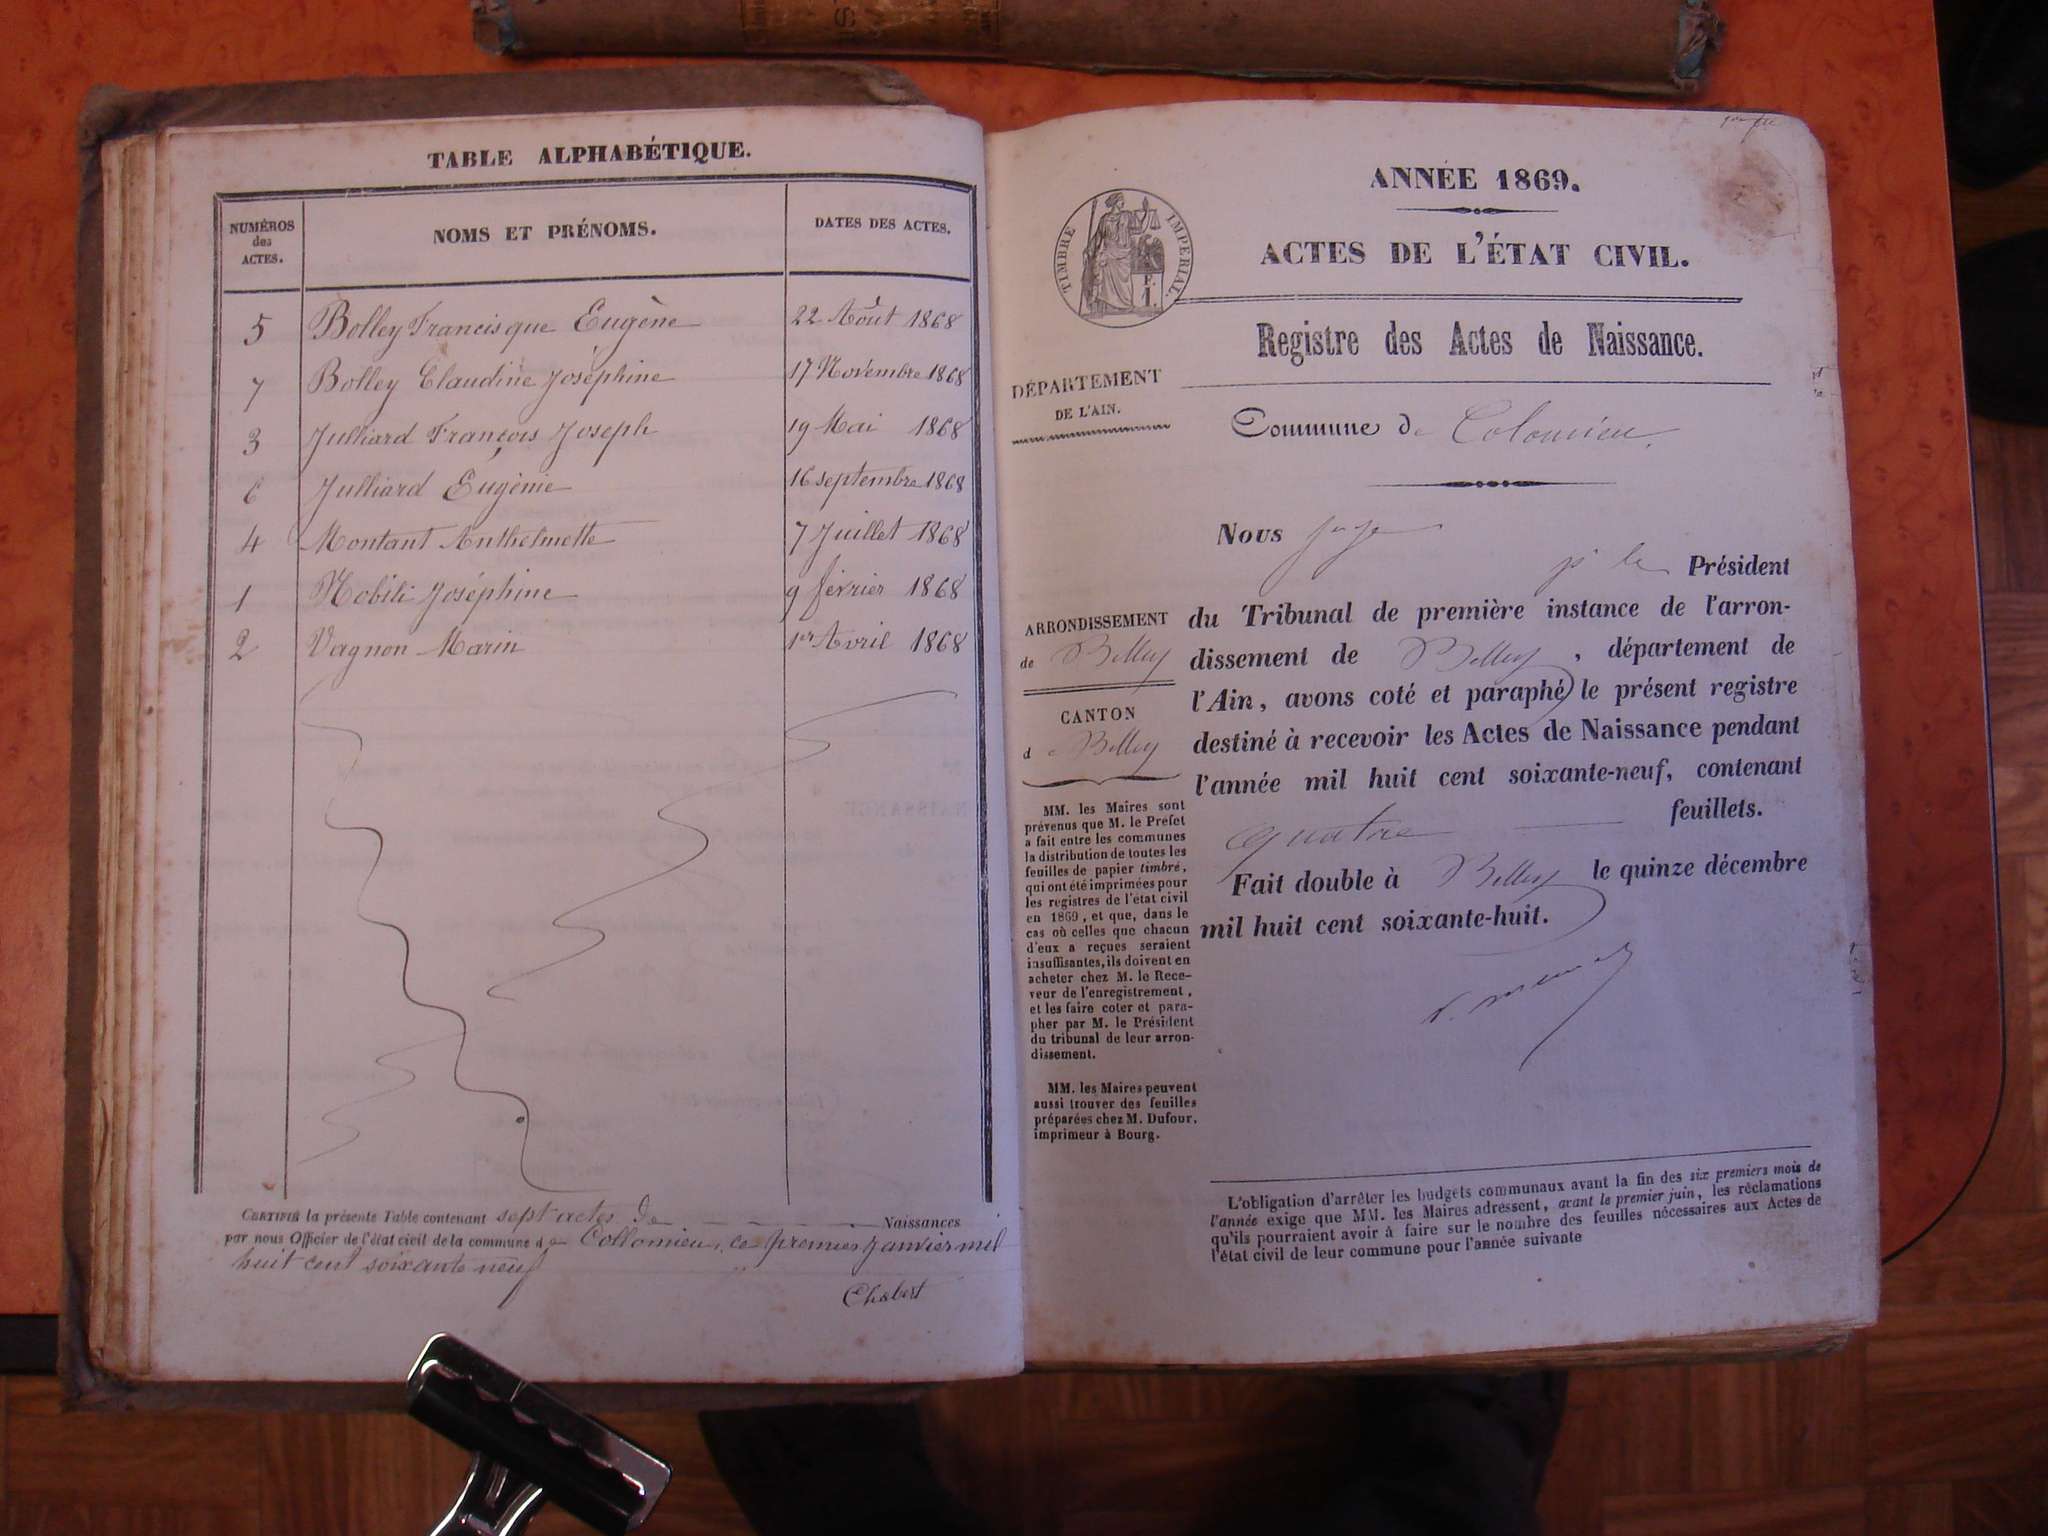 TABLE ALPHABÉTIQUE.
NUMÉROS
des
ACTES.
NOMS ET PRÉNOMS.
DATES DES ACTES.
5 Bolley Francisque Eugène 22 Août 1868
7 Bolley Claudine Joséphine 17 Novembre 1868
3 Julliard François Joseph 19 Mai 1868
6 Julliard Eugénie 16 septembre 1868
4 Montant Anthelmette 7 Juillet 1868
1 Nobili Joséphine 9 février 1868
2 Vagnon Marin 1er Avril 1868
CERTIFIÉ la présente Table contenant sept actes de Naissances
par nous Officier de l'état civil de la commune de Collomieu, ce premier Janvier mil
huit cent soixante neuf
Chabert
ANNÉE 1869.
TIMBRE IMPERIAL.
F.
1.
ACTES DE L'ÉTAT CIVIL.
Registre des Actes de Naissance.
DÉPARTEMENT
DE L'AIN.
Commune de Colomieu.
Nous juge
Président
ARRONDISSEMENT
de Belley
CANTON
de Belley
du Tribunal de première instance de l'arron-
dissement de Belley, département de
l'Ain, avons coté et paraphé le présent registre
destiné à recevoir les Actes de Naissance pendant
l'année mil huit cent soixante-neuf, contenant
quatre feuillets.
Fait double à Belley le quinze décembre
mil huit cent soixante-huit.
MM. les Maires sont
prévenus que M. le Préfet
a fait entre les communes
la distribution de toutes les
feuilles de papier timbré,
qui ont été imprimées pour
les registres de l'état civil
en 1869, et que, dans le
cas où celles que chacun
d'eux a reçues seraient
insuffisantes, ils doivent en
acheter chez M. le Rece-
veur de l'enregistrement,
et les faire coter et para-
pher par M. le Président
du tribunal de leur arron-
dissement.
MM. les Maires peuvent
aussi trouver des feuilles
préparées chez M. Dufour,
imprimeur à Bourg.
L'obligation d'arrêter les budgets communaux avant la fin des six premiers mois de
l'année exige que MM. les Maires adressent, avant le premier juin, les réclamations
qu'ils pourraient avoir à faire sur le nombre des feuilles nécessaires aux Actes de
l'état civil de leur commune pour l'année suivante